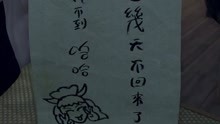 幾天不回來了
不到哈哈